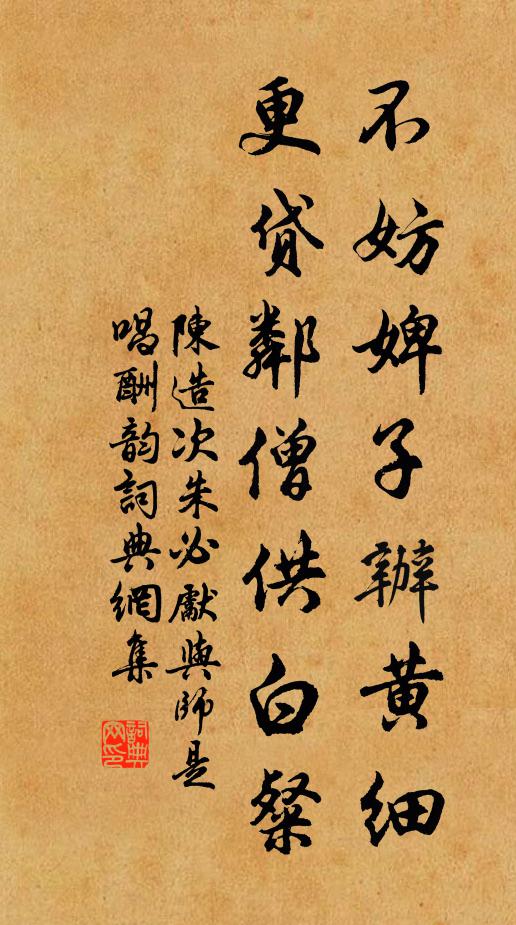 不妨婢子辦黃細
更貸鄰僧供白粲
陳造次朱必獻與師是
唱酬韵詞典網集
詞典網印